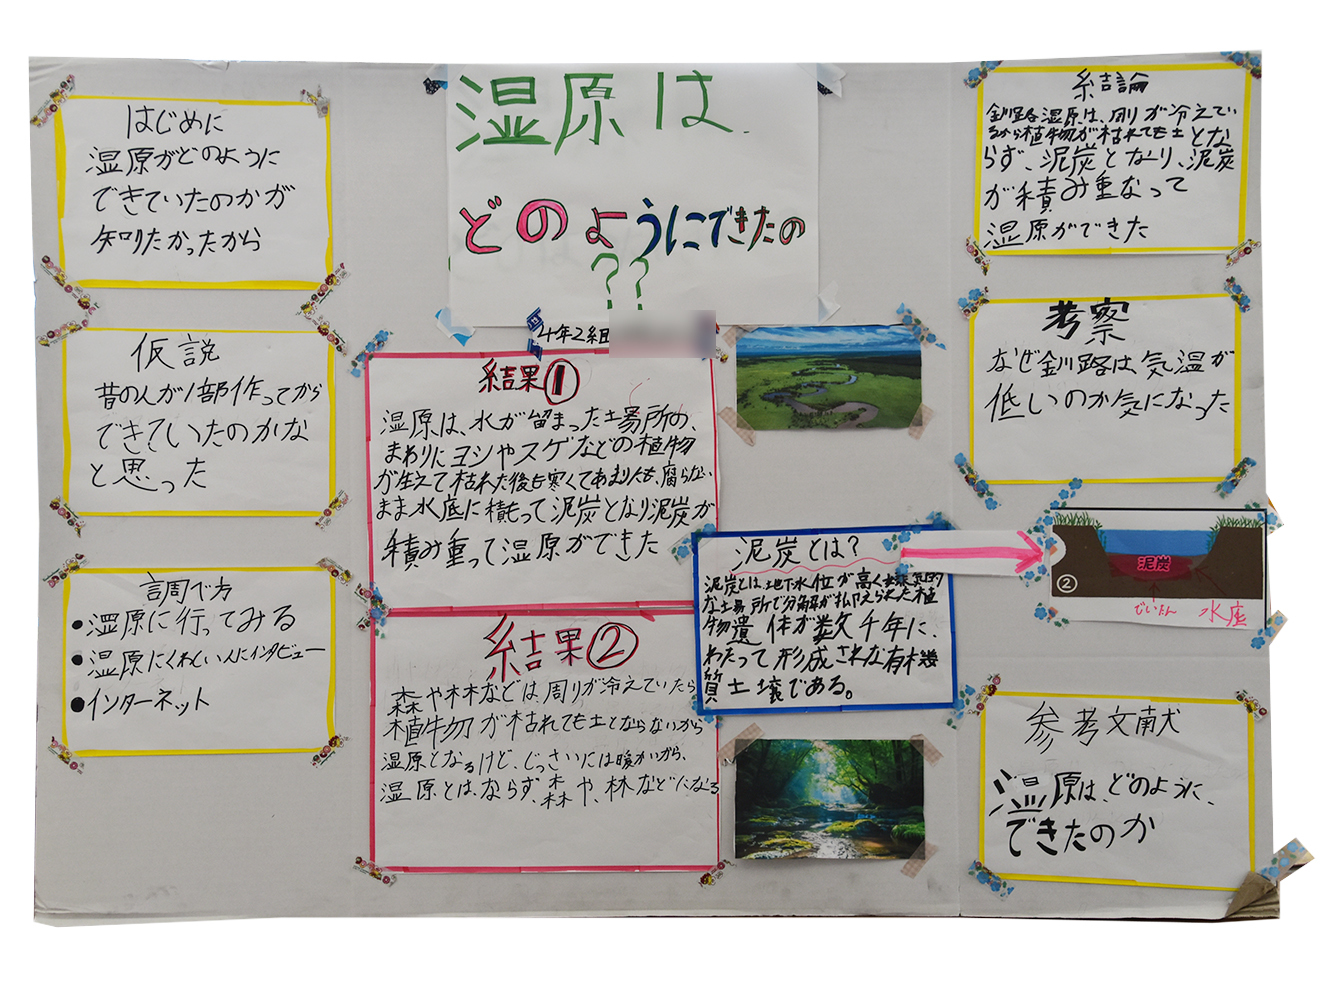 湿原は
どのようにできたの
??
4年2組
はじめに
湿原がどのように
できていたのかが
知りたかったから
仮説
昔の人が1部作ってから
できていたのかな
と思った
調べ方
●湿原に行ってみる
●湿原にくわしい人にインタビュー
●インターネット
結果①
湿原は、水が留まった場所の、
まわりにヨシやスゲなどの植物
が生えて枯れた後も寒くてあまりにも、腐らない
まま水底に積もって泥炭となり泥炭が
積み重って湿原ができた
結果②
森や林などは、周りが冷えていたら
植物が枯れても土とならないから
湿原となるけど、じっさいには暖かいから、
湿原とは、ならず、森や、林などになる
泥炭とは?
泥炭とは、地下水位が高く
な場所で分解が抑えられた植
物遺体が数千年に、
わたって形成された有機
質土壌である。
②
泥炭
でいたん
水底
結論
釧路湿原は、周りが冷えてい
るから植物が枯れても土とな
らず、泥炭となり、泥炭
が積み重なって
湿原ができた
考察
なぜ釧路は、気温が
低いのか気になった
参考文献
湿原は、どのように、
できたのか